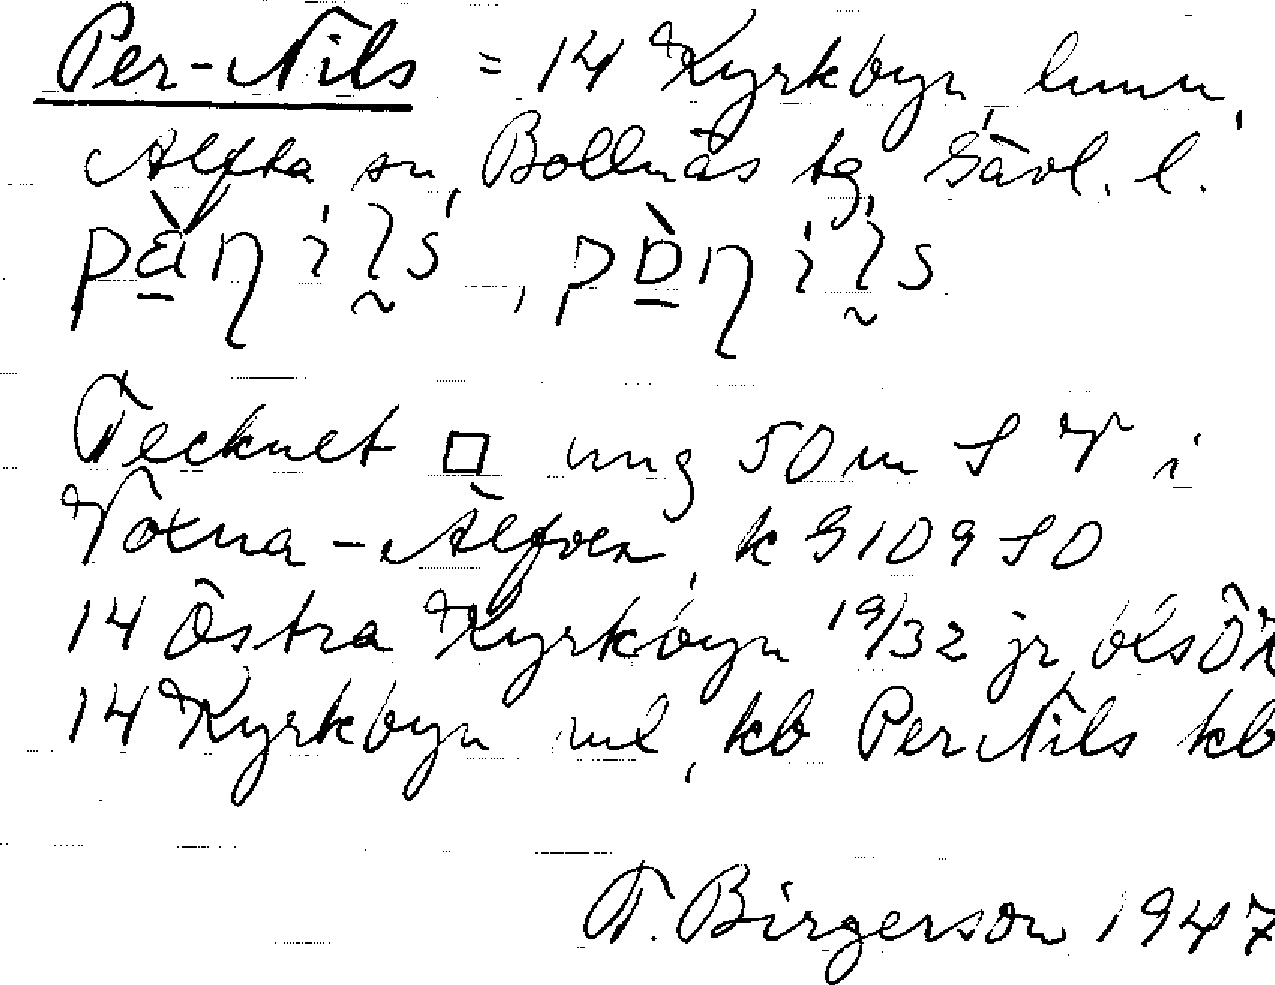 Per-Nils = 14 Kyrkbyn, hmn,
Alfta sn, Bollnäs tg, Gävl. l.
Tecknet □ ung 50 m S V i
Voxna-Älfven, k G 109 SO
14 Östra Kyrkbyn 19/32 jr,
14 Kyrkbyn ml, kb Per Nils kb
T. Birgerson 1947